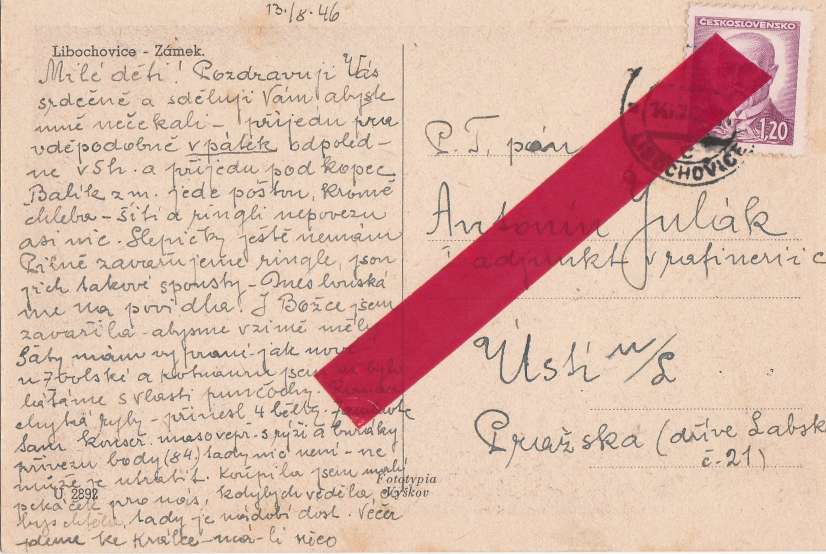 13./8.46
Libochovice - Zámek.
Milé děti! Pozdravuji Vás
srdečně a sděluji Vám abyste
mně nečekali - přijedu pra
vděpodobně v pátek odpoled-
ne v 5h. a přijedu pod kopec
Balík z m. jede poštou, kromě
chleba - šití a ringlí nepovezu
asi nic. Slepičky ještě nemám
Pilně zavařujeme ringle, jsou
jich takové spousty - Dnes louská
me na povidla. I Božce jsem
zavařila - abysme v zimě měly
šaty mám vyprané jak nové
a
látáme s vlasti punčochy.
chytá ryby - přinesl 4 bělky
konser. masovepr. s rýží a buráky
přivezu body (84) tady nic není - ne
může se utratit. Koupila jsem malý
pekáček pro nás, kdybych věděla
bys chtěla, tady je nádobí dost. Večer
jdeme ke Králce - má-li něco
U 2892
Fototypia
Vyškov
ČESKOSLOVENSKO
1,20
LIBOCHOVICE
P.T. pán
Antonín Julák
adjunkt v rafinerii c
Ústí n/L
Pražska (dříve Labsk
č. 21)